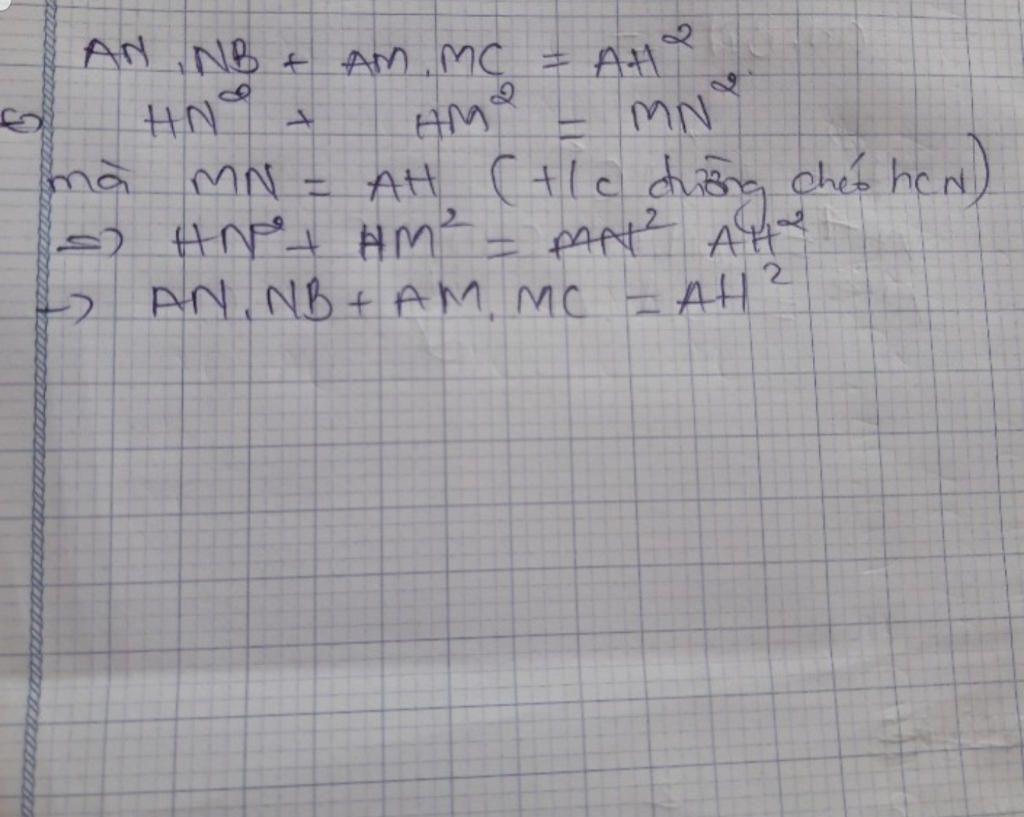 AN . NB + AM . MC = AH²
HN² + HM² = MN²
mà MN = AH (t/c đường chéo hcN)
=> HN² + HM² = AH²
-> AN . NB + AM . MC = AH²